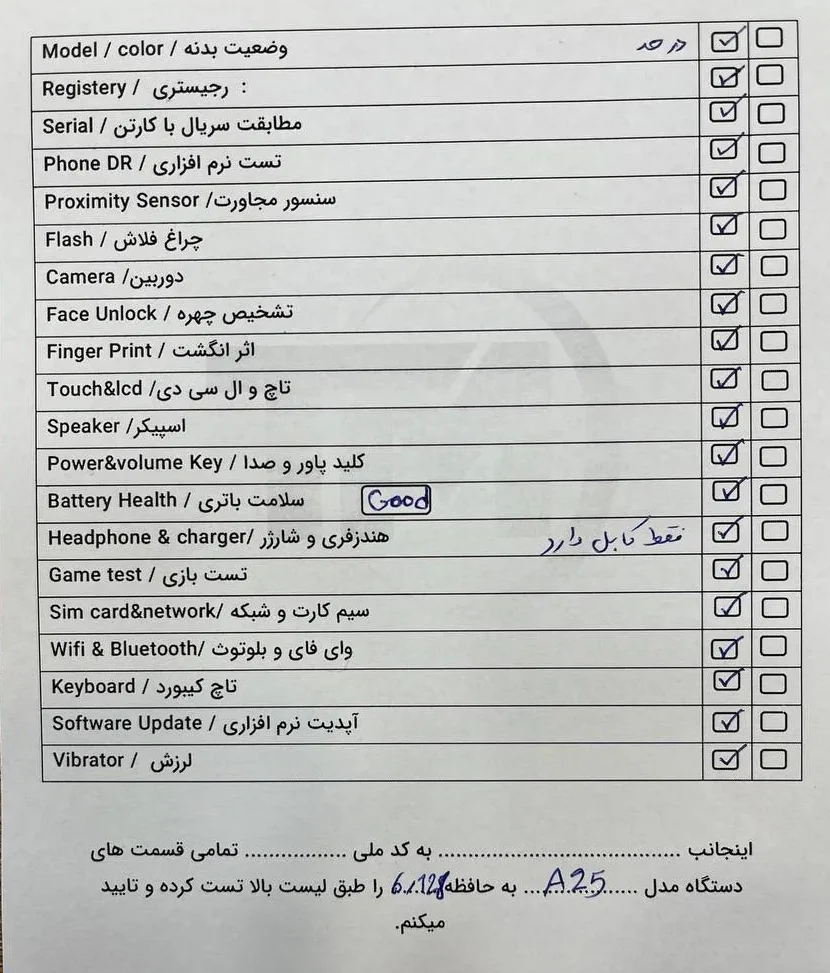 Model / color / وضعیت بدنه در حد
Registery / رجیستری :
Serial / مطابقت سریال با کارتن
Phone DR / تست نرم افزاری
Proximity Sensor /سنسور مجاورت
Flash / چراغ فلاش
Camera /دوربین
Face Unlock / تشخیص چهره
Finger Print / اثر انگشت
Touch&lcd /تاچ و ال سی دی
Speaker /اسپیکر
Power&volume Key / کلید پاور و صدا
Battery Health / سلامت باتری Good
Headphone & charger/ هندزفری و شارژر فقط کابل دارد
Game test / تست بازی
Sim card&network/ سیم کارت و شبکه
Wifi & Bluetooth/ وای فای و بلوتوث
Keyboard / تاچ کیبورد
Software Update / آپدیت نرم افزاری
Vibrator / لرزش
اینجانب ........................................ به کد ملی ................. تمامی قسمت های
دستگاه مدل ......A25...... به حافظه 6/128 را طبق لیست بالا تست کرده و تایید
میکنم.